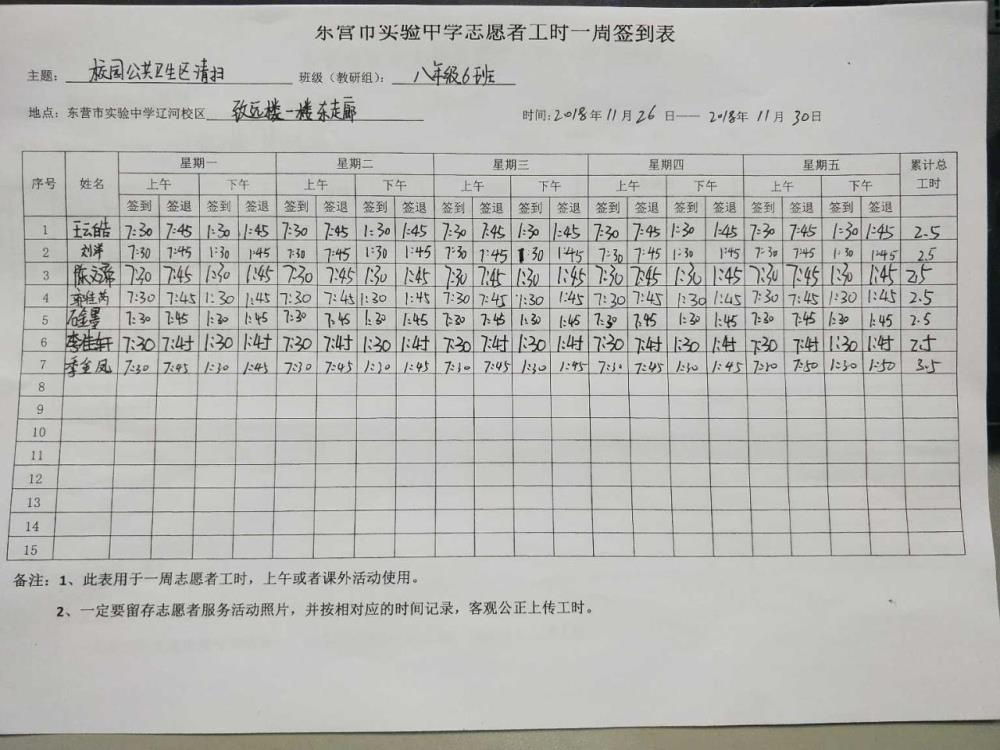 东营市实验中学志愿者工时一周签到表
主题： 校园公共卫生区清扫 班级（教研组）： 八年级6班
地点：东营市实验中学辽河校区 致远楼一楼东走廊 时间：2018年11月26日——2018年11月30日
序号 姓名 星期一 星期二 星期三 星期四 星期五 累计总工时
上午 下午 上午 下午 上午 下午 上午 下午 上午 下午
签到 签退 签到 签退 签到 签退 签到 签退 签到 签退 签到 签退 签到 签退 签到 签退 签到 签退 签到 签退
1 王云皓 7:30 7:45 1:30 1:45 7:30 7:45 1:30 1:45 7:30 7:45 1:30 1:45 7:30 7:45 1:30 1:45 7:30 7:45 1:30 1:45 2.5
2 刘洋 7:30 7:45 1:30 1:45 7:30 7:45 1:30 1:45 7:30 7:45 1:30 1:45 7:30 7:45 1:30 1:45 7:30 7:45 1:30 1:45 2.5
3 陈 7:30 7:45 1:30 1:45 7:30 7:45 1:30 1:45 7:30 7:45 1:30 1:45 7:30 7:45 1:30 1:45 7:30 7:45 1:30 1:45 2.5
4 7:30 7:45 1:30 1:45 7:30 7:45 1:30 1:45 7:30 7:45 1:30 1:45 7:30 7:45 1:30 1:45 7:30 7:45 1:30 1:45 2.5
5 7:30 7:45 1:30 1:45 7:30 7:45 1:30 1:45 7:30 7:45 1:30 1:45 7:30 7:45 1:30 1:45 7:30 7:45 1:30 1:45 2.5
6 李佳轩 7:30 7:45 1:30 1:45 7:30 7:45 1:30 1:45 7:30 7:45 1:30 1:45 7:30 7:45 1:30 1:45 7:30 7:45 1:30 1:45 2.5
7 季金凤 7:30 7:45 1:30 1:45 7:30 7:45 1:30 1:45 7:30 7:45 1:30 1:45 7:30 7:45 1:30 1:45 7:30 7:50 1:30 1:50 3.5
8
9
10
11
12
13
14
15
备注：1、此表用于一周志愿者工时，上午或者课外活动使用。
2、一定要留存志愿者服务活动照片，并按相对应的时间记录，客观公正上传工时。